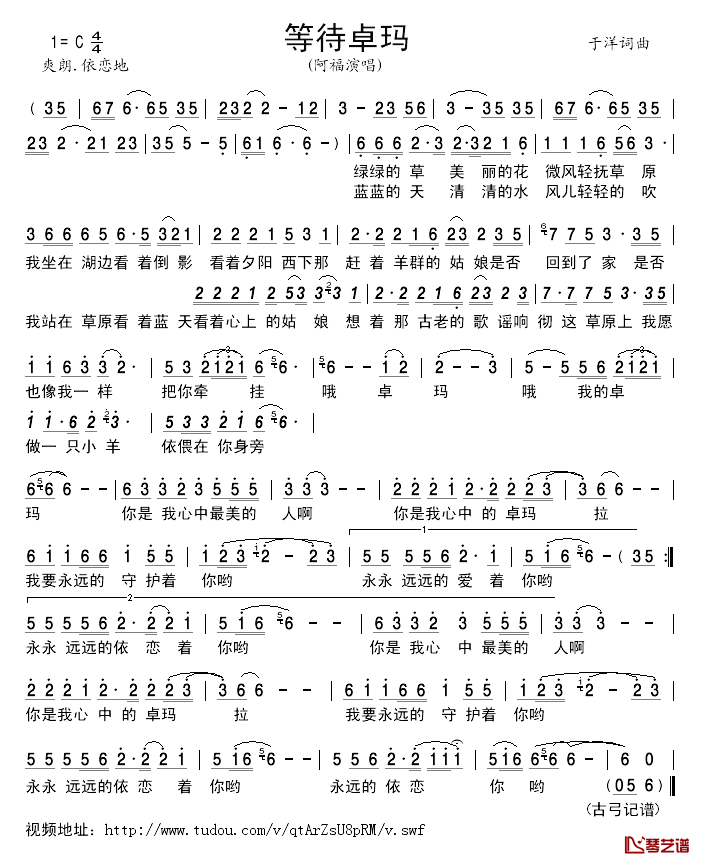 等待卓玛
1= C 4/4
于洋词曲
爽朗.依恋地
(阿福演唱)
( 35 | 67 6· 65 35 | 232 2 - 12 | 3 - 23 56 | 3 - 35 35 | 67 6· 65 35 |
23 2 · 21 23 | 35 5 - 5 | 61 6· 6 -) | 6 6 6 2·3 2·32 1 6 | 1 1 1 6 56 3 ·
绿绿的 草 美 丽的花 微风轻抚草 原
蓝蓝的 天 清 清的水 风儿轻轻的 吹
3 6 6 6 5 6·5 321 | 2 2 2 1 5 3 1 | 2·2 2 1 6 23 2 3 5 | 7 7 5 3· 3 5
我坐在 湖边看 着倒 影 看着夕阳 西下那 赶 着 羊群的 姑 娘是否 回到了 家 是否
2 2 2 1 2 53 3 3 1 | 2·2 2 1 6 23 2 3 5 | 7·7 7 5 3·3 5
我站在 草原看 着蓝 天看着心上 的姑 娘 想 着 那 古老的 歌 谣响 彻 这 草原上 我愿
i i 6 3 3 2· | 5 3 2i2i 6· | 6 - i 2 | 2 - - 3 | 6 5 3 2 2i2i
也像我一 样 把你牵 挂 哦 卓 玛 哦 我的卓
i i·6 2 3· | 5 3 3 2 i 6 6·
做一 只小 羊 依偎在 你身旁
6 6 6 - - | 6 3 3 2 3 5 5 5 | 3 3 3 - - | 2 2 2 i 2·2 2 2 3 | 3 6 6 - -
玛 你是 我心中最美的 人啊 你是我心中 的 卓玛 拉
1
6 i i 6 6 i 5 5 | i 2 3 2 - 2 3 | 5 5 5 5 6 2· i | 5 i 6 6 - ( 3 5 :‖
我要永远的 守 护着 你哟 永永 远远的 爱 着 你哟
2
5 5 5 5 6 2· 2 2 i | 5 i 6 6 - - | 6 3 3 2 3 5 5 5 | 3 3 3 - -
永永 远远的依 恋 着 你哟 你是 我心 中 最美的 人啊
2 2 2 i 2· 2 2 2 3 | 3 6 6 - - | 6 i i 6 6 i 5 5 | i 2 3 2 - 2 3
你是我心 中 的 卓玛 拉 我要永远的 守 护着 你哟
5 5 5 5 6 2· 2 2 i | 5 i6 6 - - | 5 5 5 6 2· 2 i i i | 5 i6 6 6 - | 6 0
永永 远远的依 恋 着 你哟 永远的 依恋 你 哟
(05 6)
(古弓记谱)
视频地址：http://www.tudou.com/v/qtArZsU8pRM/v.swf
琴艺谱